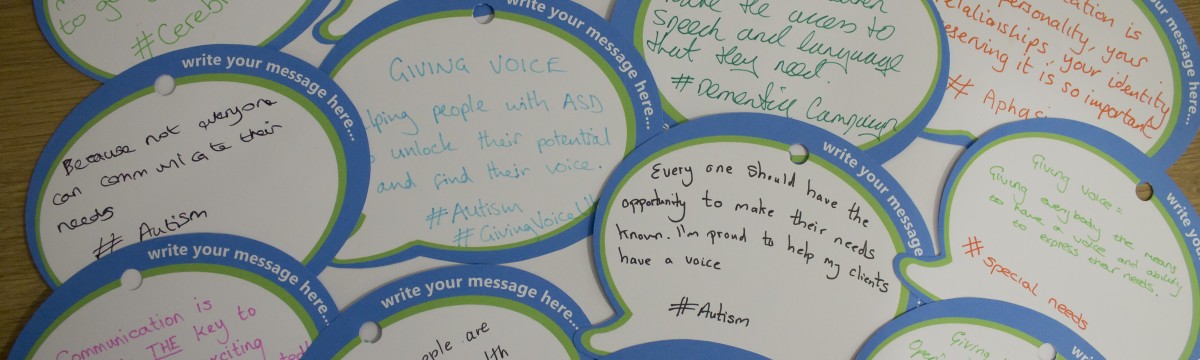 to g
#Cerebr
write your message here...
Because not everyone
can communicate their
needs
# Autism
write your message here...
GIVING VOICE
lping people with ASD
unlock their potential
and find their voice.
#Autism
#GivingVoiceU
the access to
Speech and language
that they need.
#Dementia Campaign
write your message here...
ation is
personality, your
relationships, your identity
eserving it is so important
# Aphas
write your message
Every one should have the
opportunity to make their needs
known. I'm proud to help my clients
have a voice
#Autism
write your message here...
Giving voice =
Giving everybody the means
to have a voice and ability
to express their needs.
#special needs
write your message here...
Communication is
THE key to
citing
write your message here...
ople are
lth
write your
Giving